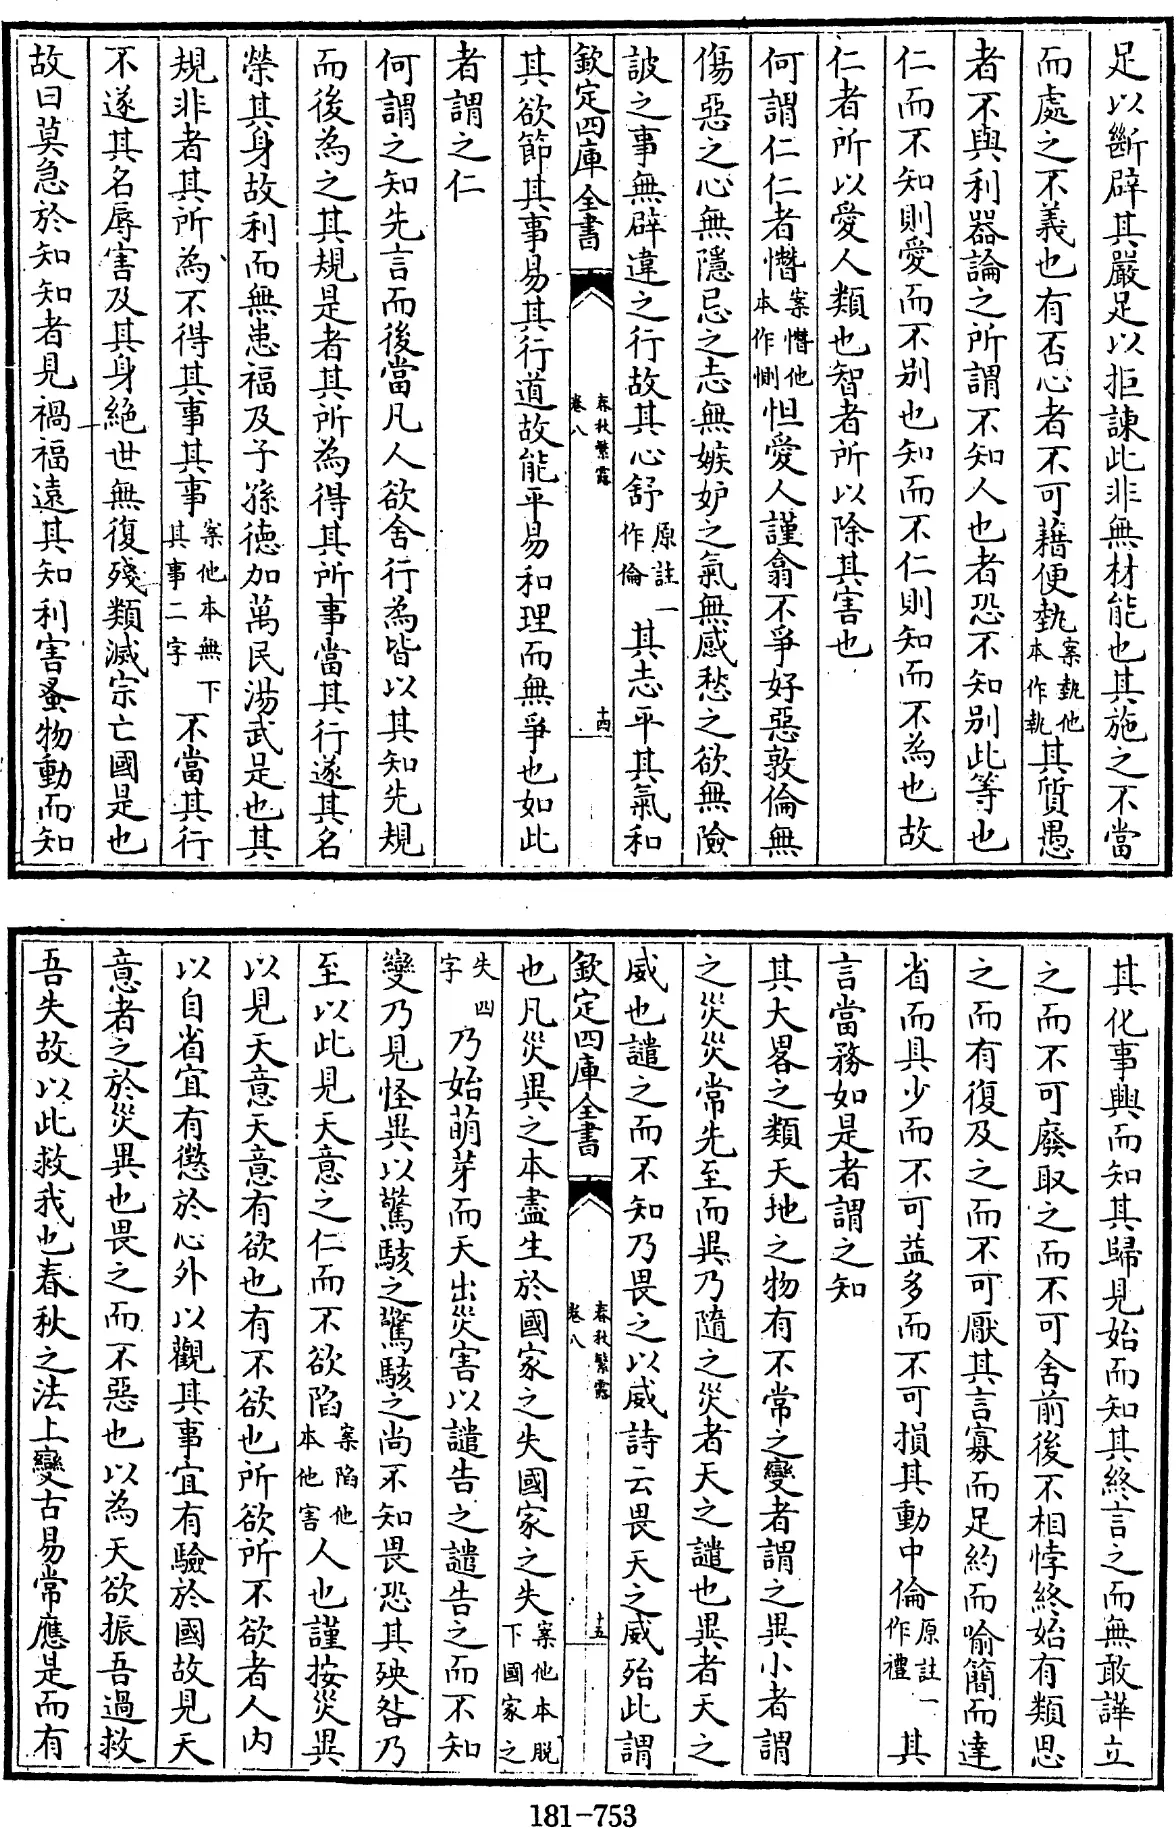 足以斷辟其嚴足以拒諫此非無材能也其施之不當
而處之不義也有否心者不可藉便埶案執他本作執其質愚
者不與利器論之所謂不知人也者恐不知別此等也
仁而不知則愛而不別也知而不仁則知而不為也故
仁者所以愛人類也智者所以除其害也
何謂仁仁者憯案憯他本作惻怛愛人謹翕不爭好惡敦倫無
傷惡之心無隱忌之志無嫉妒之氣無感愁之欲無險
詖之事無辟違之行故其心舒原註一作倫其志平其氣和
欽定四庫全書
春秋繁露
卷八
十四
其欲節其事易其行道故能平易和理而無爭也如此
者謂之仁
何謂之知先言而後當凡人欲舍行為皆以其知先規
而後為之其規是者其所為得其所事當其行遂其名
榮其身故利而無患福及子孫德加萬民湯武是也其
規非者其所為不得其事其事案他本無下其事二字不當其行
不遂其名辱害及其身絕世無復殘類滅宗亡國是也
故曰莫急於知知者見禍福遠其知利害蚤物動而知
其化事興而知其歸見始而知其終言之而無敢譁立
之而不可廢取之而不可舍前後不相悖終始有類思
之而有復及之而不可厭其言寡而足約而喻簡而達
省而具少而不可益多而不可損其動中倫原註一作禮其
言當務如是者謂之知
其大畧之類天地之物有不常之變者謂之異小者謂
之災災常先至而異乃隨之災者天之譴也異者天之
威也譴之而不知乃畏之以威詩云畏天之威殆此謂
欽定四庫全書
春秋繁露
卷八
十五
也凡災異之本盡生於國家之失國家之失案他本脫下國家之
失四字乃始萌芽而天出災害以譴告之譴告之而不知
變乃見怪異以驚駭之驚駭之尚不知畏恐其殃咎乃
至以此見天意之仁而不欲陷案陷他本他害人也謹按災異
以見天意天意有欲也有不欲也所欲所不欲者人內
以自省宜有懲於心外以觀其事宜有驗於國故見天
意者之於災異也畏之而不惡也以為天欲振吾過救
吾失故以此救我也春秋之法上變古易常應是而有
181-753